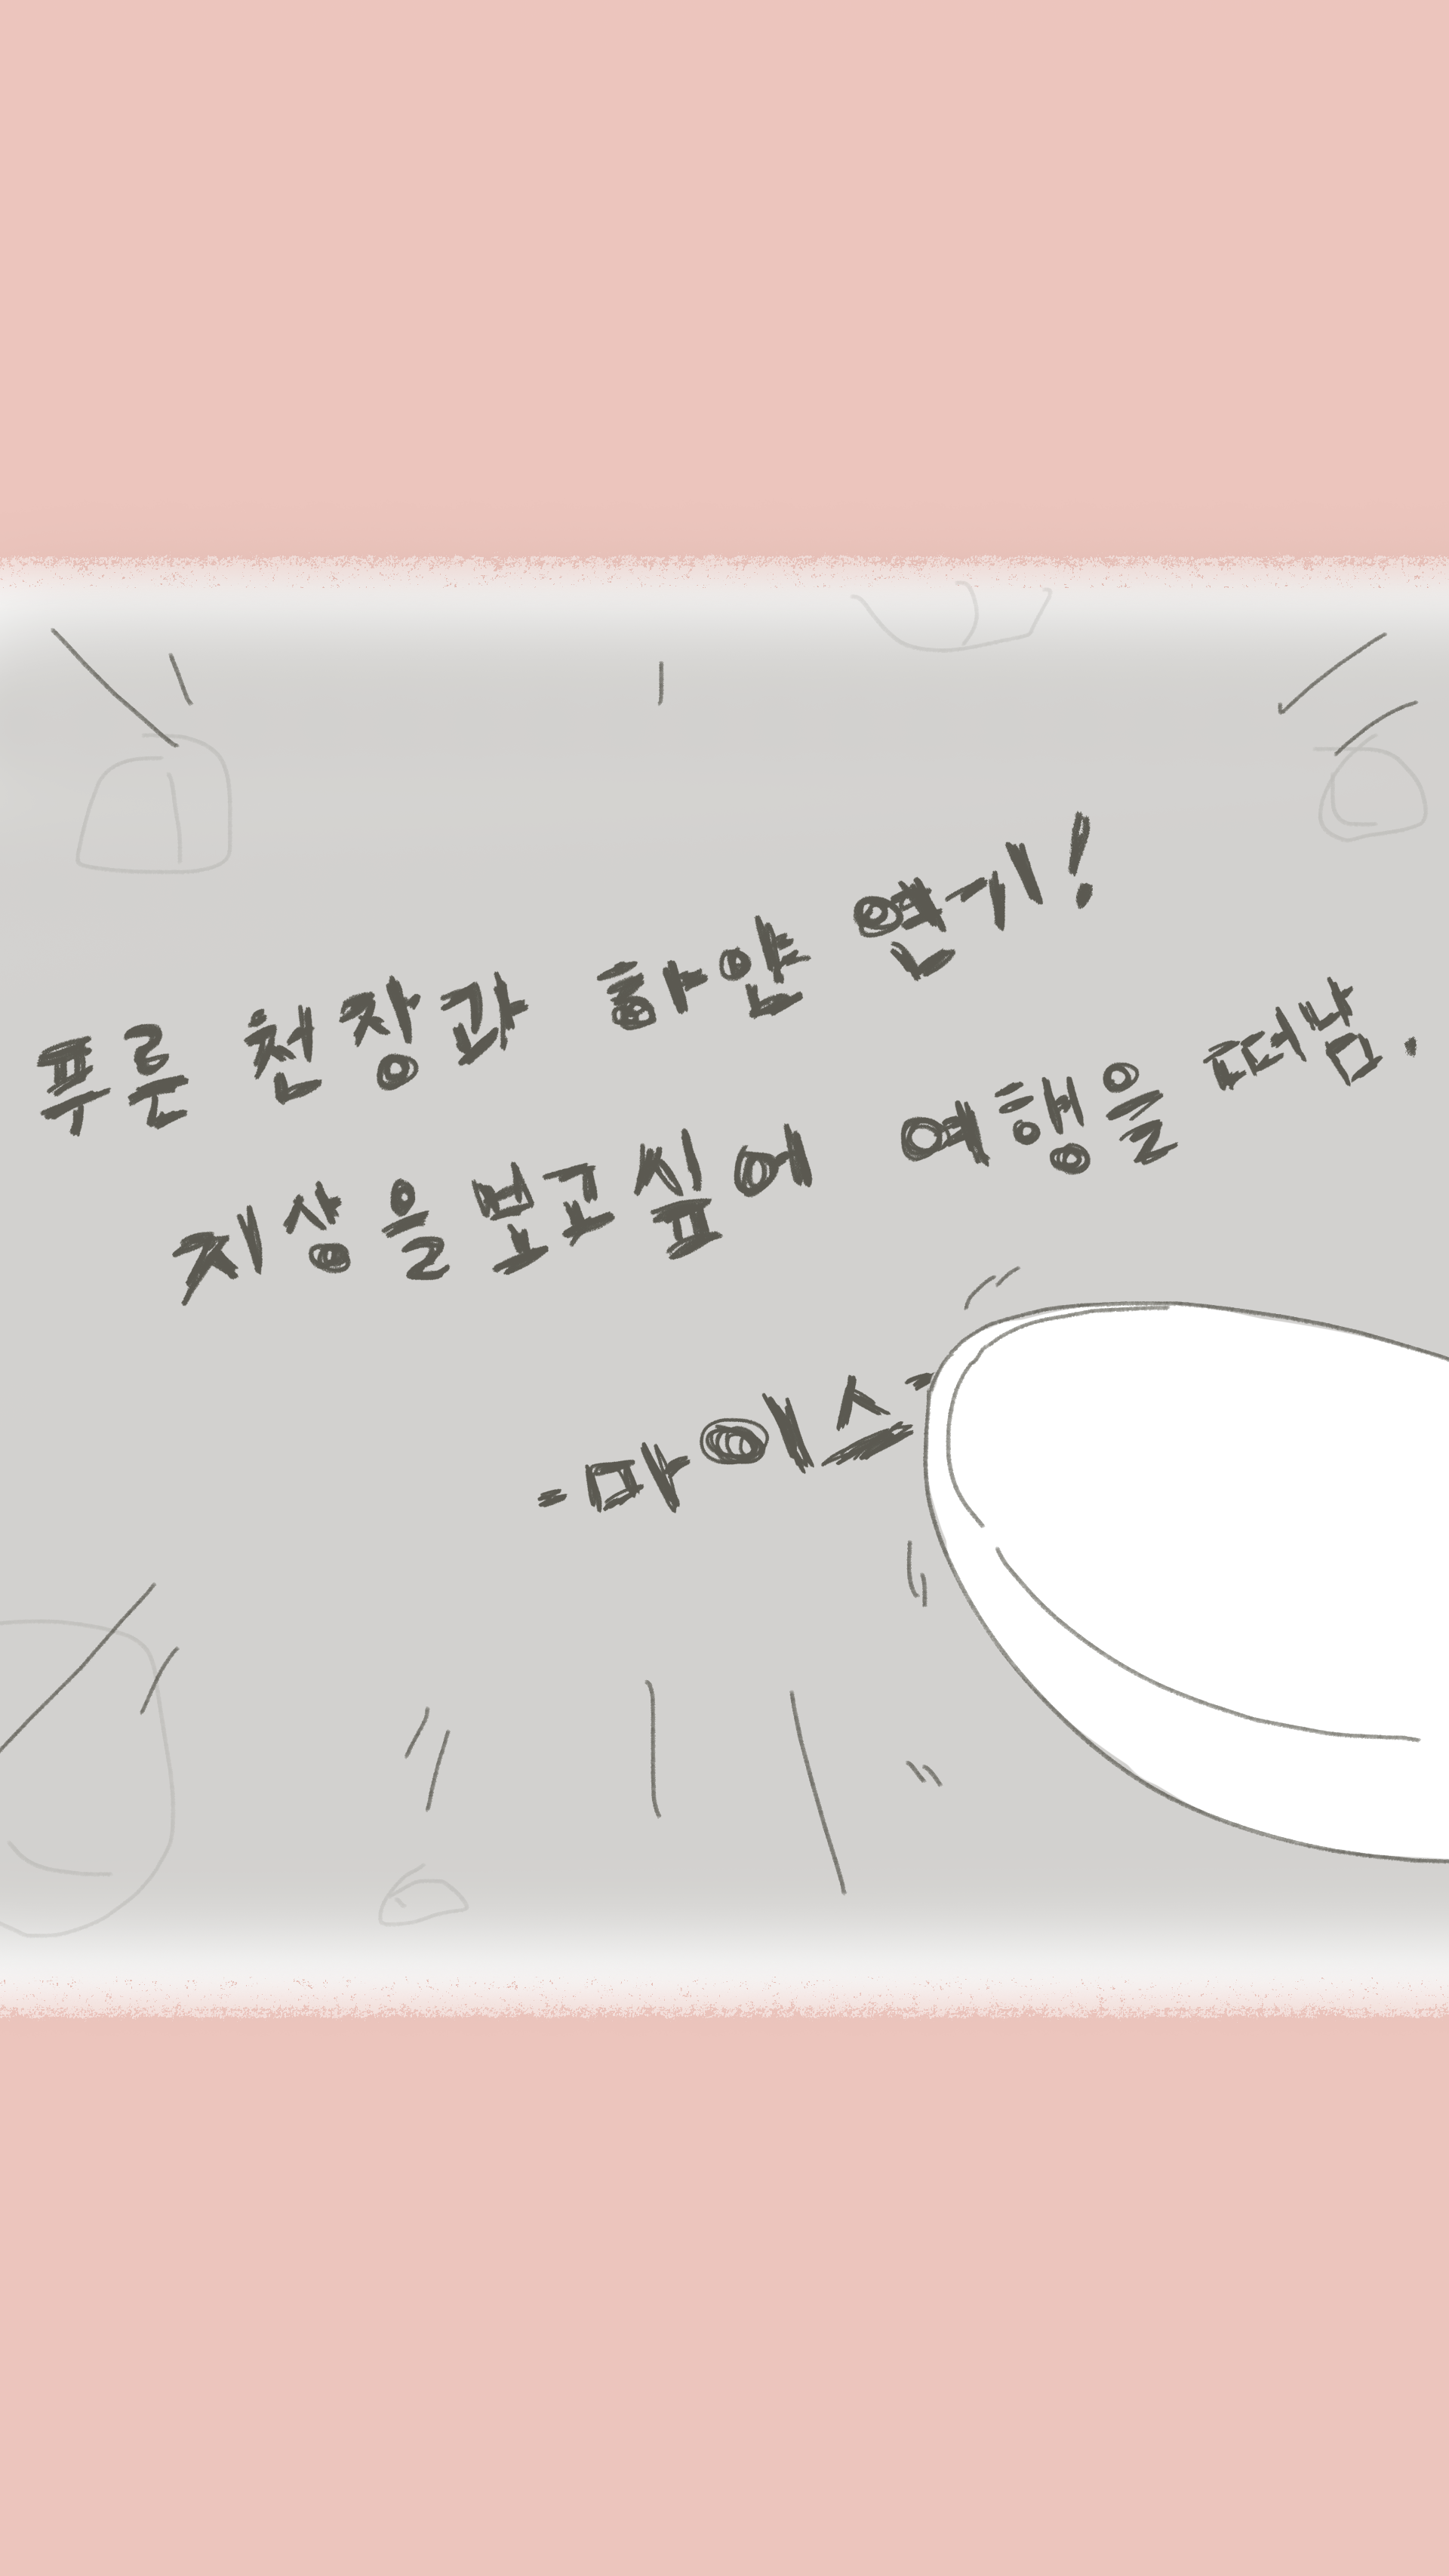 푸른 천장과 하얀 연기!
지상을보고싶어 여행을 떠남.
-마이스-